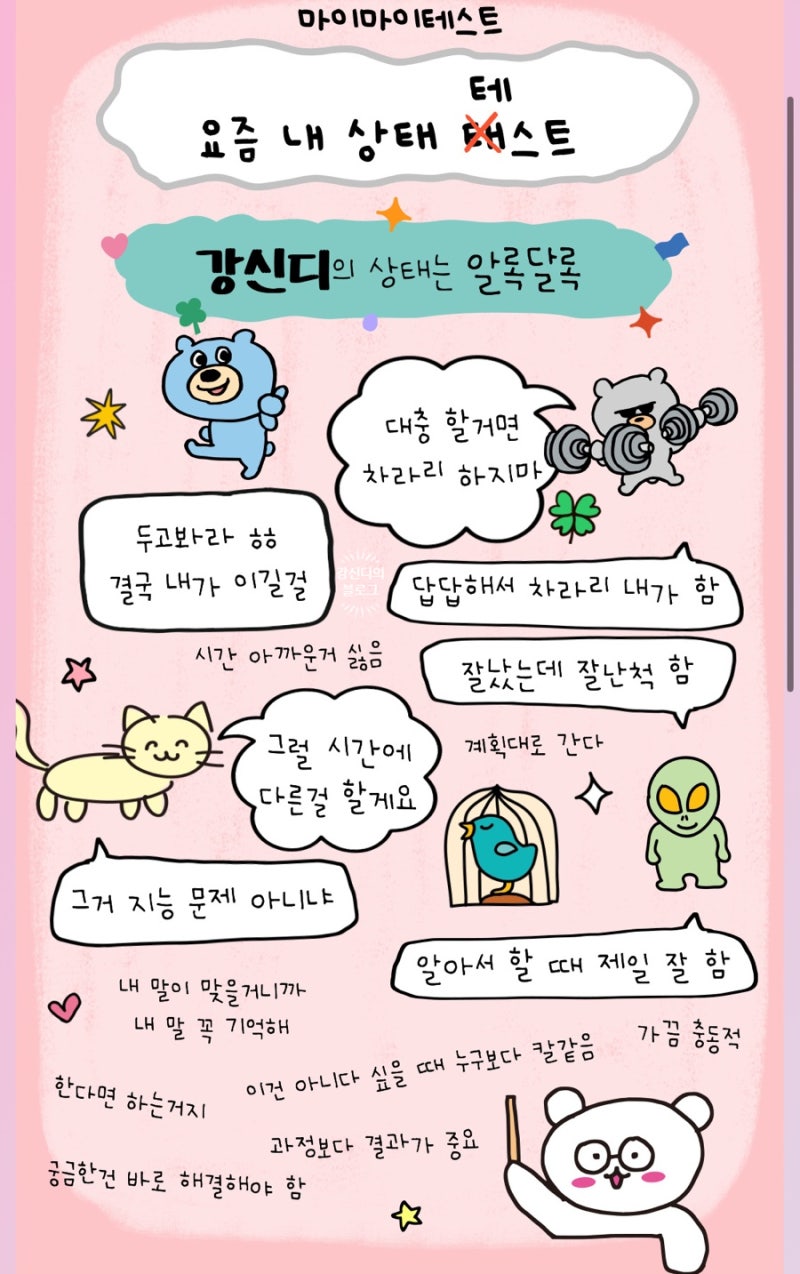 마이마이테스트
테
요즘 내 상태 태스트
강신디의 상태는 알록달록
대충 할거면
차라리 하지마
두고봐라 ㅎㅎ
결국 내가 이길걸
강신디의
블로그
답답해서 차라리 내가 함
시간 아까운거 싫음
잘났는데 잘난척 함
그럴 시간에
다른걸 할게요
계획대로 간다
그거 지능 문제 아니냐
알아서 할 때 제일 잘 함
내 말이 맞을거니까
내 말 꼭 기억해
가끔 충동적
이건 아니다 싶을 때 누구보다 칼같음
한다면 하는거지
과정보다 결과가 중요
궁금한건 바로 해결해야 함